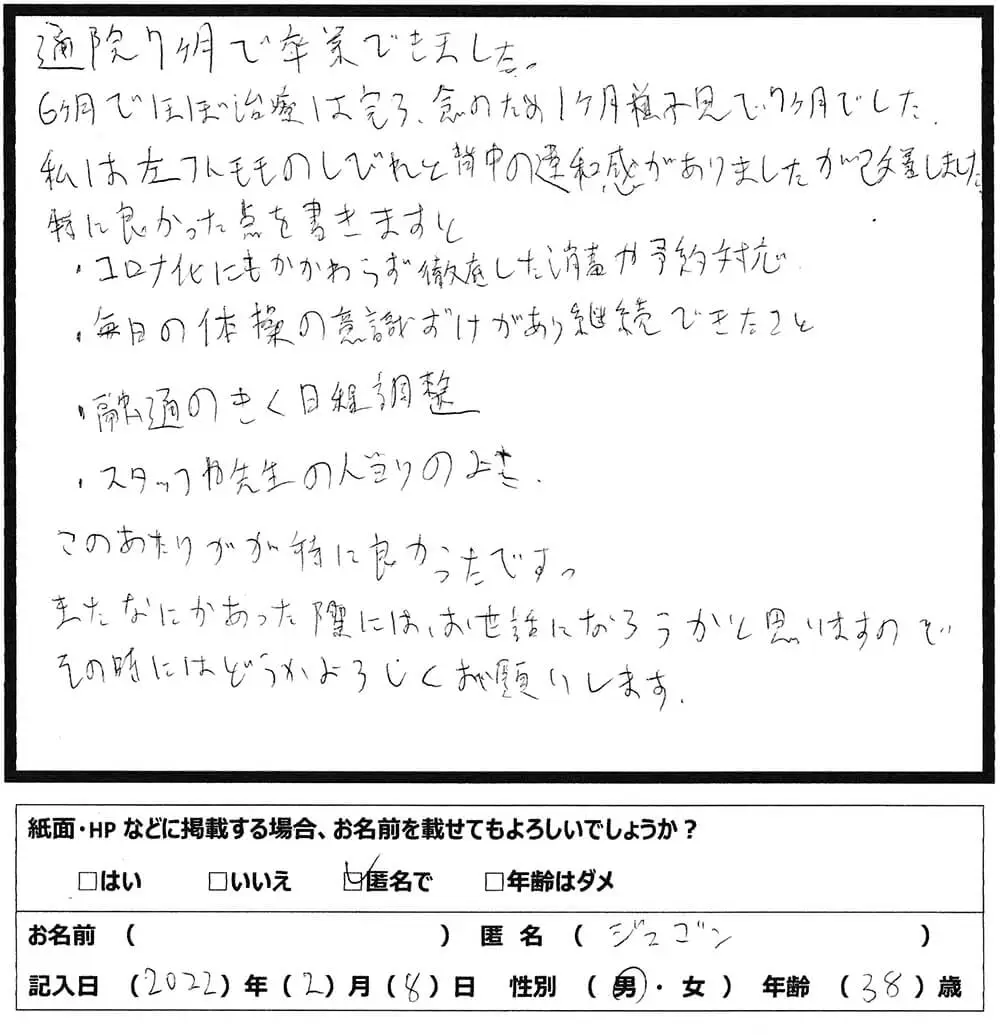 通院7ヶ月で卒業できました。
6ヶ月でほぼ治療は完了、念のため1ヶ月様子見で、7ヶ月でした。
私は左フトモモのしびれと背中の違和感がありましたが改善しました。
特に良かった点を書きますと
・コロナ化にもかかわらず徹底した消毒や予約対応
・毎日の体操の意識ずけがあり継続できたこと
・融通のきく日程調整
・スタッフや先生の人当りのよさ.
このあたりがが特に良かったです。
またなにかあった際には、お世話になろうかと思いますので
その時にはどうかよろしくお願いします.
紙面・HPなどに掲載する場合、お名前を載せてもよろしいでしょうか?
□はい □いいえ ☑匿名で □年齢はダメ
お名前 ( ) 匿名 ( ジスゴン )
記入日 (2022)年(2)月(8)日 性別 (男・女) 年齢 (38)歳